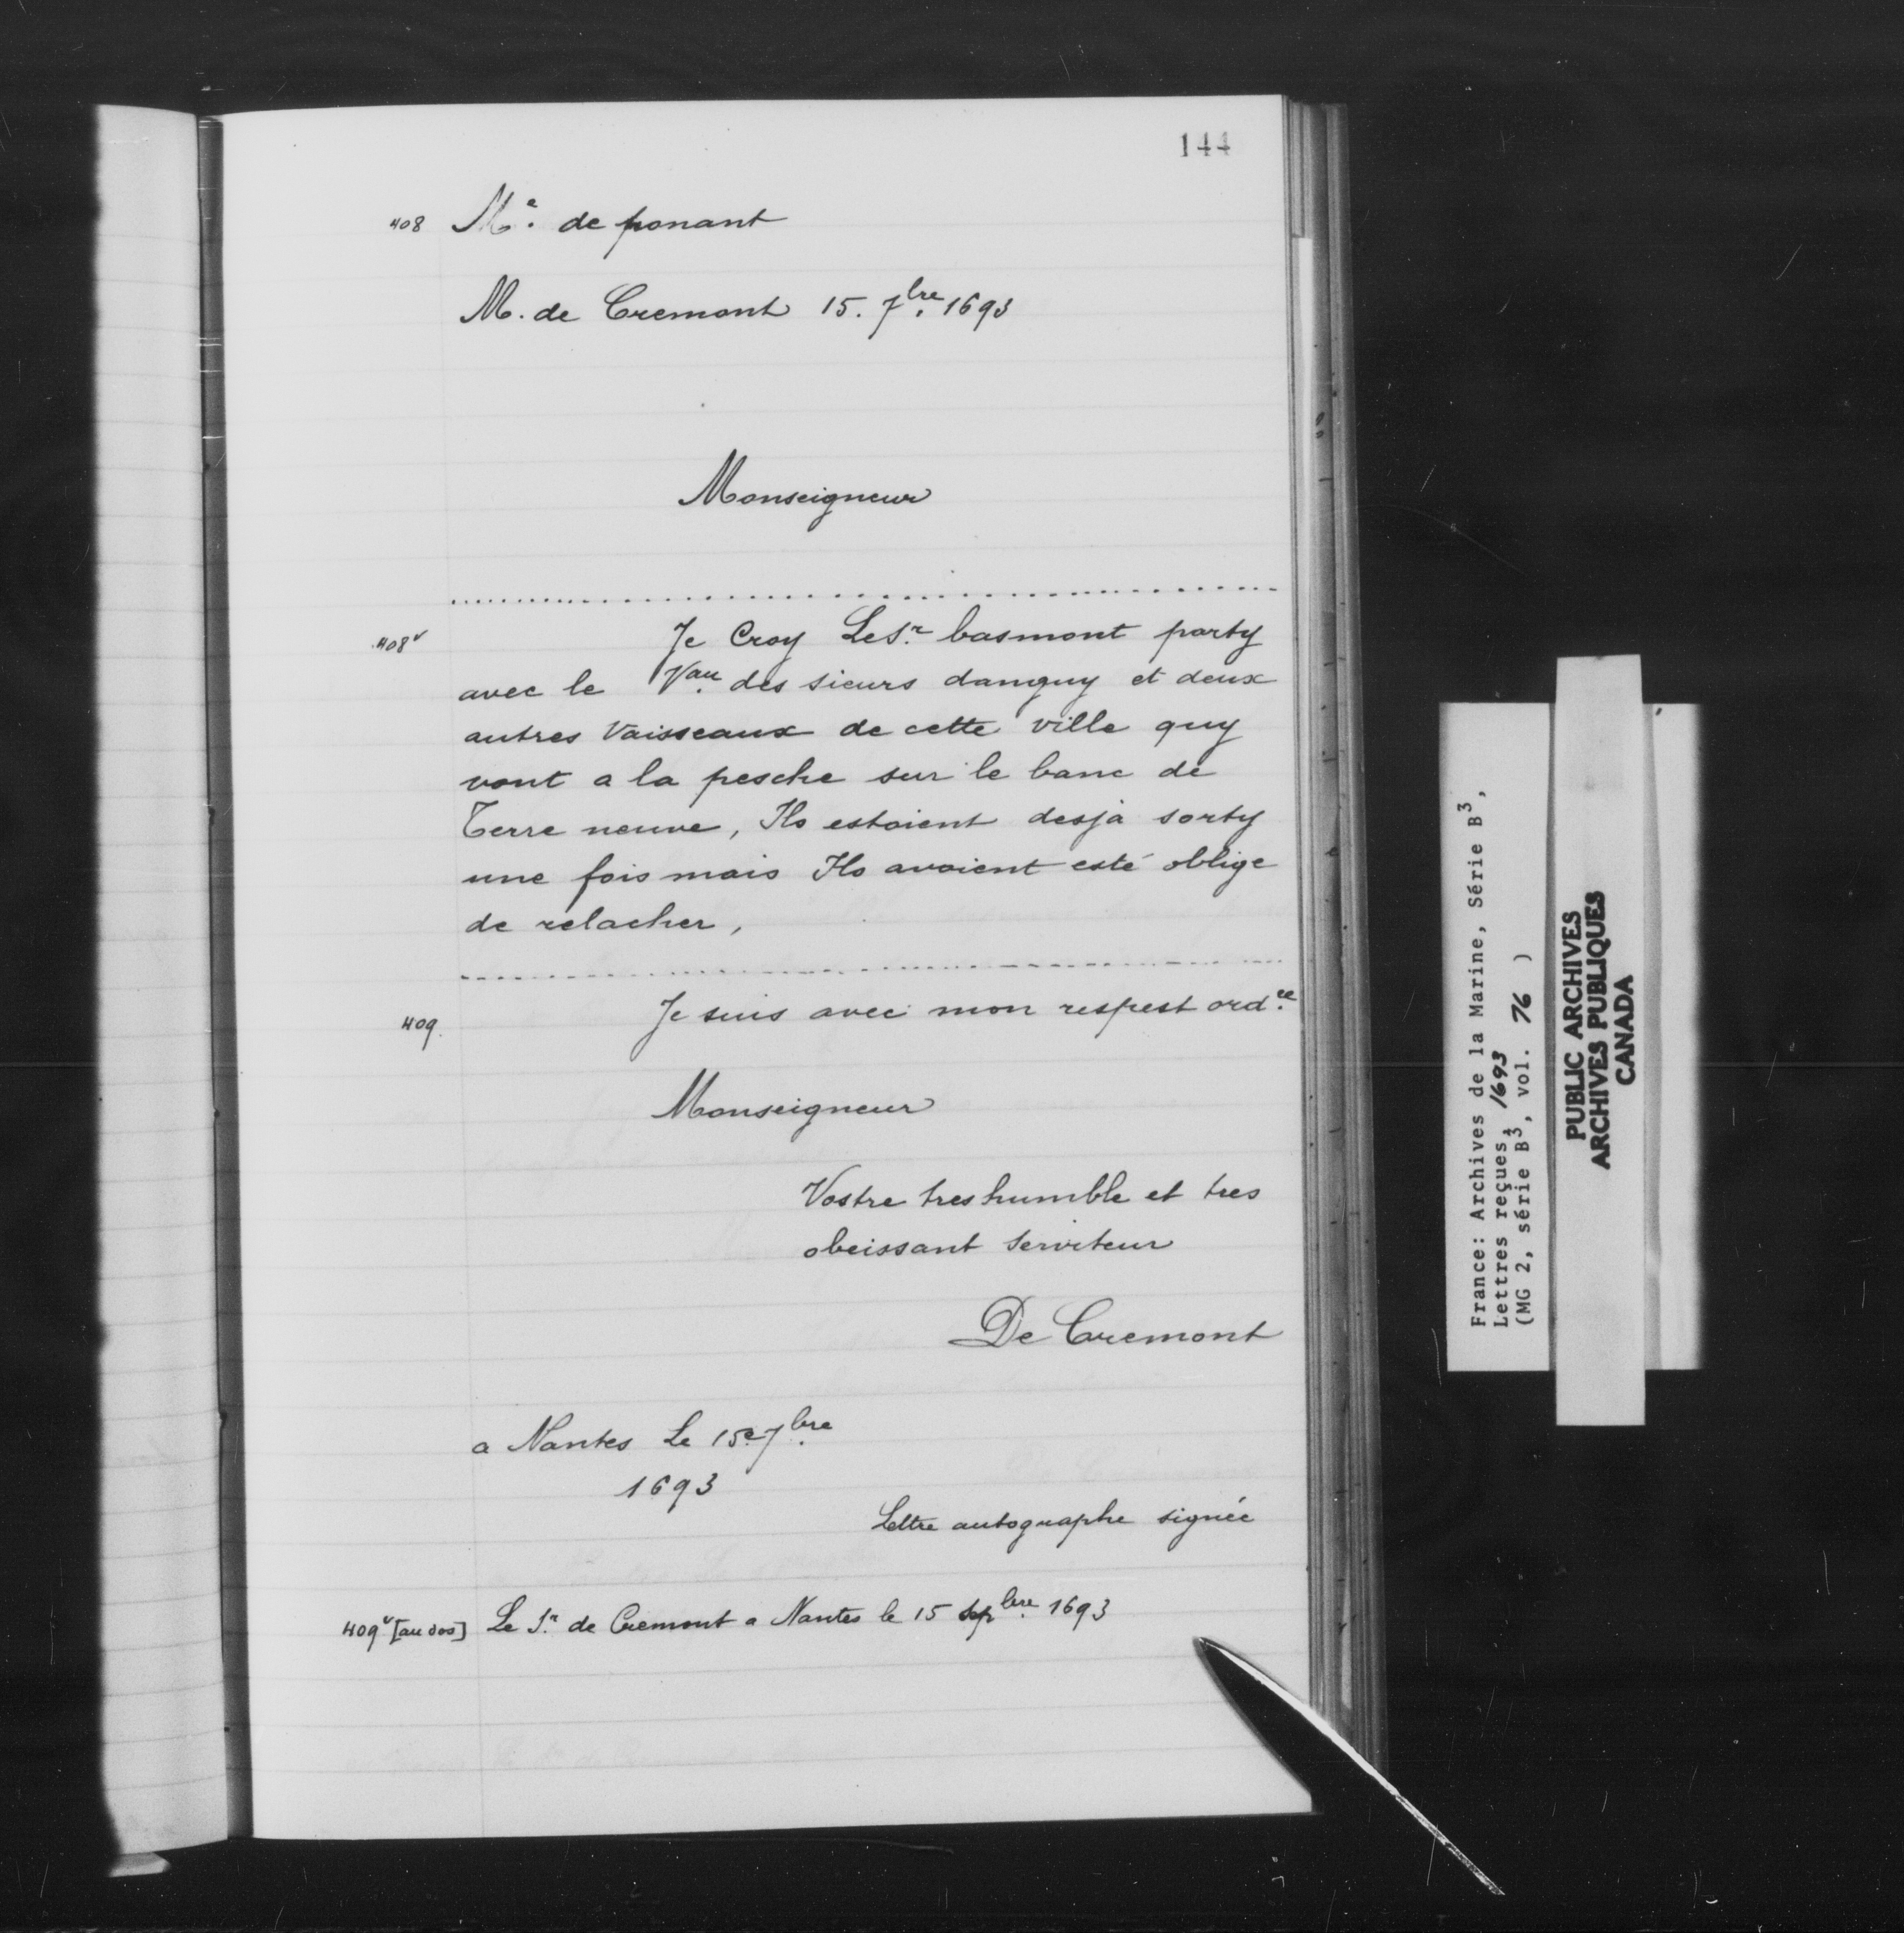 144
408 Mᵉ. de ponant
M. de Cremont 15. 7bre. 1693
Monseigneur
408v Je Croy Le Sr. basmont party
avec le Vau. des sieurs danguy et deux
autres Vaisseaux de cette ville quy
vont a la pesche sur le banc de
Terre neuve, Ils estoient desja sorty
une fois mais Ils avoient esté oblige
de relacher,
409. Je suis avec mon respest ord.ce
Monseigneur
Vostre tres humble et tres
obeissant Serviteur
De Cremont
a Nantes Le 15e. 7bre.
1693
Lettre autographe signée
409v [au dos] Le Sr. de Cremont a Nantes le 15 Sepbre. 1693
France: Archives de la Marine, Série B3,
Lettres reçues, 1693
(MG 2, série B3, vol. 76 )
PUBLIC ARCHIVES
ARCHIVES PUBLIQUES
CANADA